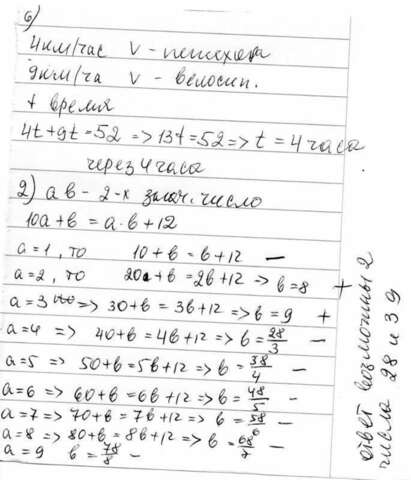 б)
4км/час v - пешехода
9км/ча v - велосип.
t время
4t+9t=52 => 13t=52 => t = 4 часа
через 4 часа
2) ав - 2-х знач. число
10а+в = а·в+12
а=1, то 10+в = в+12 —
а=2, то 20+в = 2в+12 => в=8 +
а=3 => 30+в = 3в+12 => в = 9 +
а=4 => 40+в = 4в+12 => в = 28/3 —
а=5 => 50+в = 5в+12 => в = 38/4 —
а=6 => 60+в = 6в+12 => в = 48/5 —
а=7 => 70+в = 7в+12 => в = 58/6 —
а=8 => 80+в = 8в+12 => в = 68/7 —
а=9 в = 78/8 —
ответ возможны 2
числа 28 и 39